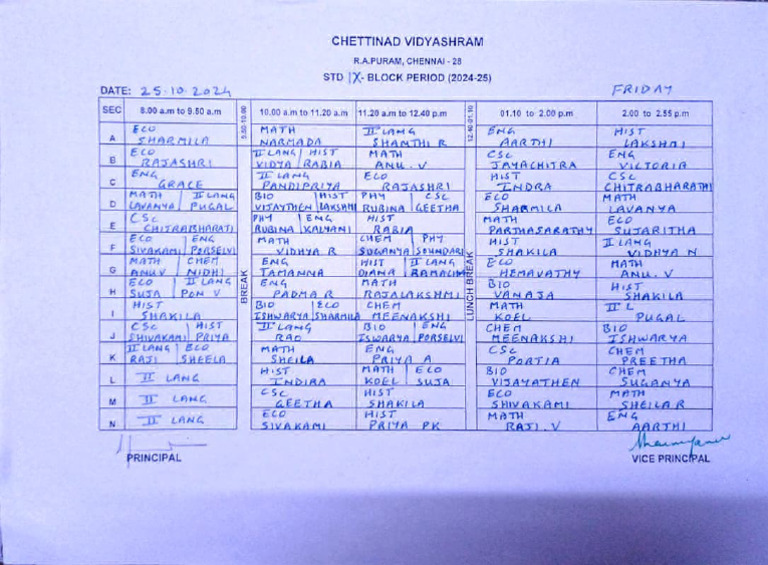 CHETTINAD VIDYASHRAM
R.A.PURAM, CHENNAI - 28
STD IX - BLOCK PERIOD (2024-25)
DATE: 25.10.2024 FRIDAY
SEC 8.00 a.m to 9.50 a.m 9.50-10.00 10.00 a.m to 11.20 a.m 11.20 a.m to 12.40 p.m 12.40-01.10 01.10 to 2.00 p.m 2.00 to 2.55 p.m
BREAK
LUNCH BREAK
ECO MATH II LANG ENG HIST
A SHARMILA NARMADA SHANTHI R AARTHI LAKSHMI
ECO II LANG HIST MATH CSC ENG
B RAJASHRI VIDYA RABIA ANU.V JAYACHITRA VICTORIA
ENG II LANG ECO HIST CSC
C GRACE PANDIPRIYA RAJASHRI INDRA CHITRABHARATHI
MATH II LANG BIO HIST PHY CSC ECO MATH
D LAVANYA PUGAL VIJAYTHEN LAKSHMI RUBINA GEETHA SHARMILA LAVANYA
CSC PHY ENG HIST MATH ECO
E CHITRABHARATI RUBINA KALYANI RABIA PARTHASARATHY SUJARITHA
ECO ENG MATH CHEM PHY HIST II LANG
F SIVAKAMI PORSELVI VIDHYA R SUGANYA SOUNDARI SHAKILA VIDHYA N
MATH CHEM ENG HIST II LANG ECO MATH
G ANU.V NIDHI TAMANNA DIANA RAMALIM HEMAVATHY ANU.V
ECO II LANG ENG MATH BIO HIST
H SUJA PON V PADMA R RAJALAKSHMI VANAJA SHAKILA
HIST BIO ECO CHEM MATH II L
I SHAKILA ISHWARYA SHARMILA MEENAKSHI KOEL PUGAL
CSC HIST II LANG BIO ENG CHEM BIO
J SHIVAKAMI PRIYA RAO ISWARYA PORSELVI MEENAKSHI ISHWARYA
II LANG ECO MATH ENG CSC CHEM
K RAJI SHEELA SHEILA PRIYA A PORTIA PREETHA
HIST MATH ECO BIO CHEM
L II LANG INDIRA KOEL SUJA VIJAYATHEN SUGANYA
CSC HIST ECO MATH
M II LANG GEETHA SHAKILA SHIVAKAMI SHEILA R
ECO HIST MATH ENG
N II LANG SIVAKAMI PRIYA PK RAJI.V AARTHI
PRINCIPAL VICE PRINCIPAL